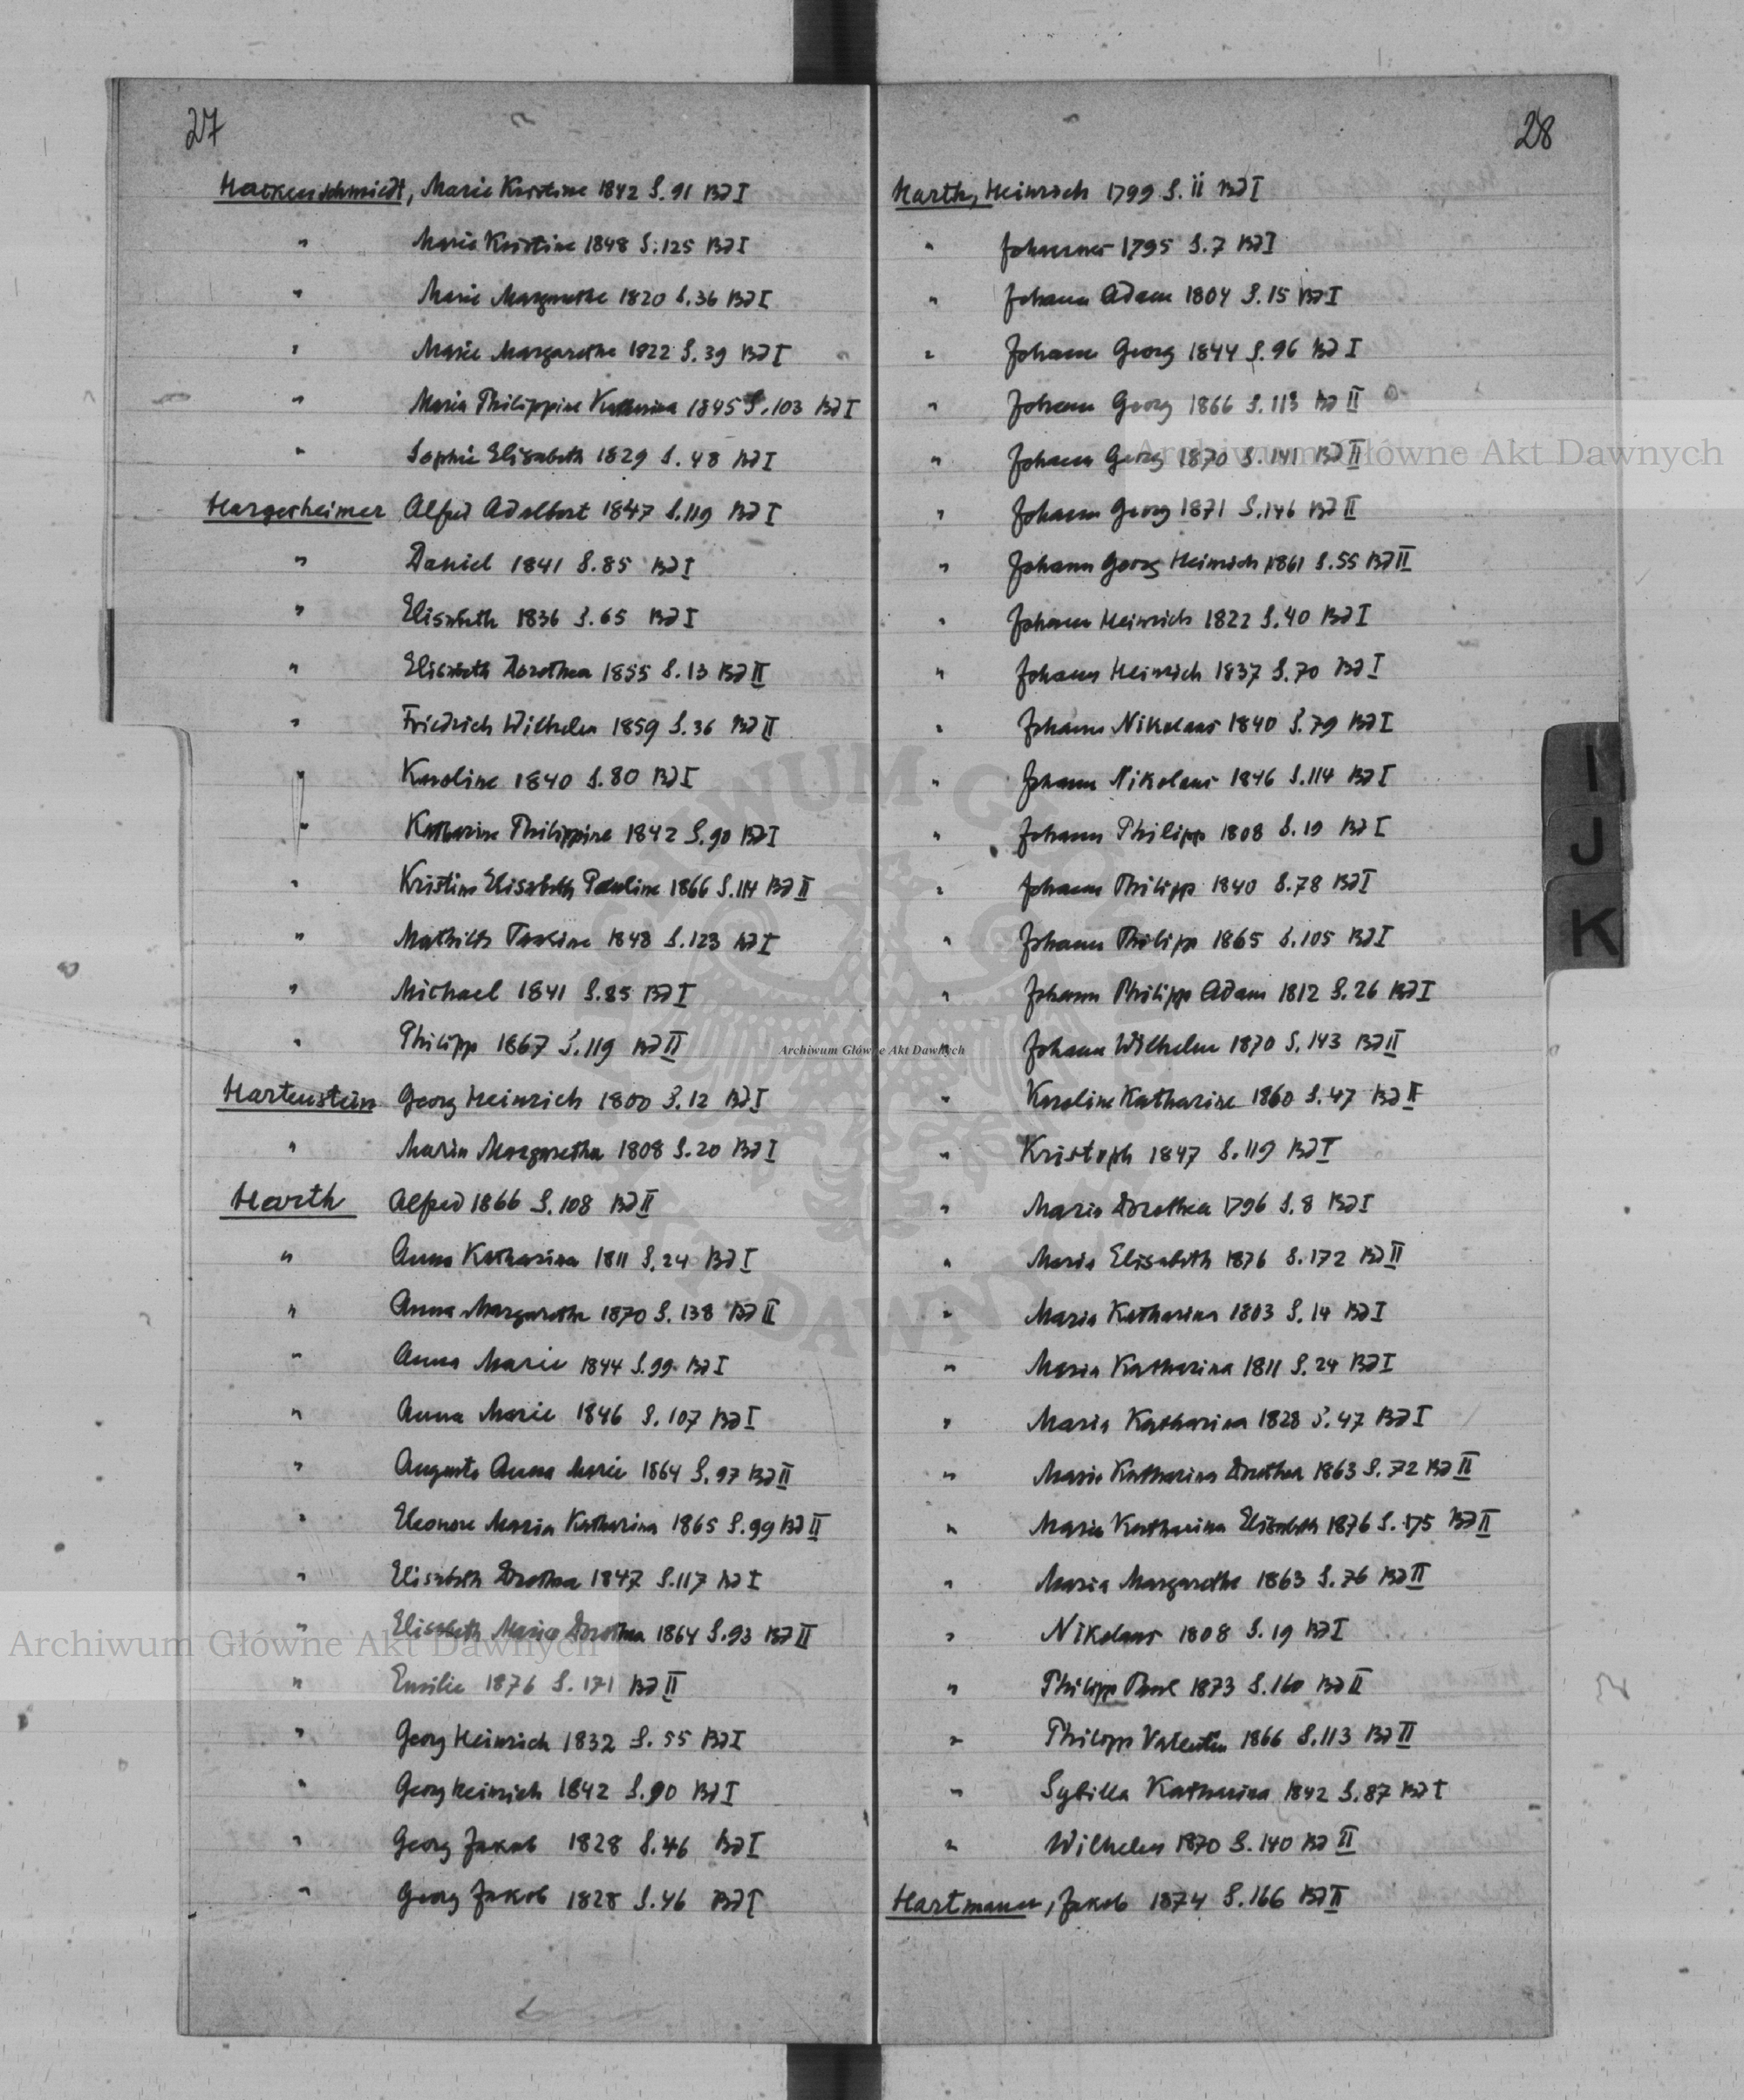 27
Hackenschmiedt, Marie Kristine 1842 S. 91 Bd I
" Marie Kristine 1848 S. 125 Bd I
" Marie Margarethe 1820 S. 36 Bd I
" Marie Margarethe 1822 S. 39 Bd I
" Maria Philippine Katharina 1845 S. 103 Bd I
" Sophie Elisabeth 1829 S. 48 Bd I
Hargesheimer Alfred Adalbert 1847 S. 119 Bd I
" Daniel 1841 S. 85 Bd I
" Elisabeth 1836 S. 65 Bd I
" Elisabeth Dorothea 1855 S. 13 Bd II
" Friedrich Wilhelm 1859 S. 36 Bd II
" Karoline 1840 S. 80 Bd I
" Katharine Philippine 1842 S. 90 Bd I
" Kristine Elisabeth Pauline 1866 S. 114 Bd II
" Mathilde 1848 S. 123 Bd I
" Michael 1841 S. 85 Bd I
" Philipp 1867 S. 119 Bd II
Hartenstein Georg Heinrich 1800 S. 12 Bd I
" Maria Margaretha 1808 S. 20 Bd I
Harth Alfred 1866 S. 108 Bd II
" Anna Katharina 1811 S. 24 Bd I
" Anna Margarethe 1870 S. 138 Bd II
" Anna Marie 1844 S. 99 Bd I
" Anna Marie 1846 S. 107 Bd I
" Auguste Anna Marie 1864 S. 97 Bd II
" Eleonore Maria Katharina 1865 S. 99 Bd II
" Elisabeth Dorothea 1847 S. 117 Bd I
" Elisabeth Maria Dorothea 1864 S. 93 Bd II
" Emilie 1876 S. 171 Bd II
" Georg Heinrich 1832 S. 55 Bd I
" Georg Heinrich 1842 S. 90 Bd I
" Georg Jakob 1828 S. 46 Bd I
" Georg Jakob 1828 S. 46 Bd I
28
Harth, Heinrich 1799 S. 11 Bd I
" Johannes 1795 S. 7 Bd I
" Johann Adam 1804 S. 15 Bd I
" Johann Georg 1844 S. 96 Bd I
" Johann Georg 1866 S. 113 Bd II
" Johann Georg 1870 S. 141 Bd II
" Johann Georg 1871 S. 146 Bd II
" Johann Georg Heinrich 1861 S. 55 Bd II
" Johann Heinrich 1822 S. 40 Bd I
" Johann Heinrich 1837 S. 70 Bd I
" Johann Nikolaus 1840 S. 79 Bd I
" Johann Nikolaus 1846 S. 114 Bd I
" Johann Philipp 1808 S. 19 Bd I
" Johann Philipp 1840 S. 78 Bd I
" Johann Philipp 1865 S. 105 Bd I
" Johann Philipp Adam 1812 S. 26 Bd I
" Johann Wilhelm 1870 S. 143 Bd II
" Karoline Katharine 1860 S. 47 Bd II
" Kristoph 1847 S. 119 Bd I
" Maria Dorothea 1796 S. 8 Bd I
" Maria Elisabeth 1876 S. 172 Bd II
" Maria Katharina 1803 S. 14 Bd I
" Maria Katharina 1811 S. 24 Bd I
" Maria Katharina 1828 S. 47 Bd I
" Marie Katharina Dorothea 1863 S. 72 Bd II
" Maria Katharina Elisabeth 1876 S. 175 Bd II
" Maria Margarethe 1863 S. 76 Bd II
" Nikolaus 1808 S. 19 Bd I
" Philipp Paul 1873 S. 160 Bd II
" Philipp Valentin 1866 S. 113 Bd II
" Sybilla Katharina 1842 S. 87 Bd I
" Wilhelm 1870 S. 140 Bd II
Hartmann, Jakob 1874 S. 166 Bd II
I
J
K
Archiwum Główne Akt Dawnych
Archiwum Główne Akt Dawnych
Archiwum Główne Akt Dawnych